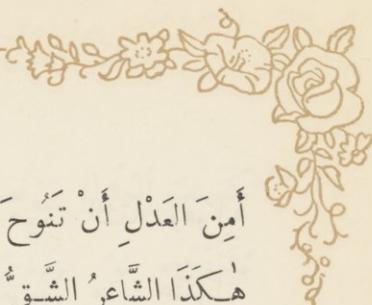 أَمِنَ العَدْلِ أَنْ تَنُوحَ
هٰكَذَا الشَّاعِرُ الشَّقِيُّ